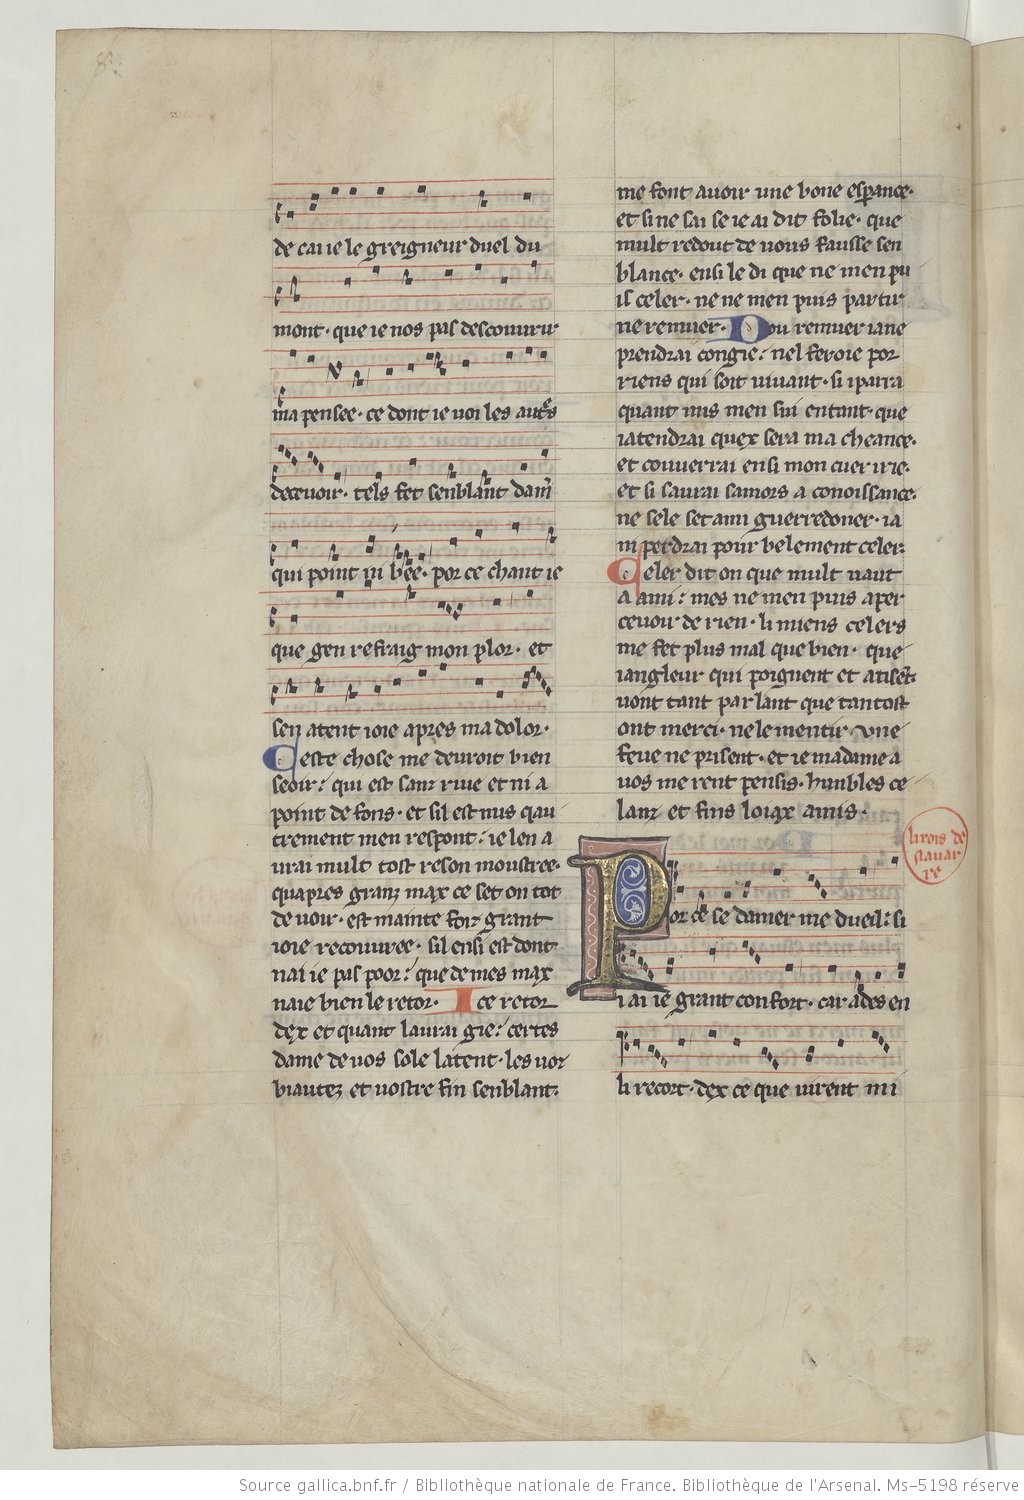 de cai ie le greigneur duel du
mont· que ie nos pas descouurir
ma pensee· ce dont ie uoi les autrs
deceuoir· tels fet senblant dam̄
qui point ni bee· por ce chant ie
que gen refraig mon plor· et
sen atent ioie apres ma dolor·
Ceste chose me deuroit bien
seoir: qui est sanz riue et ni a
point de fons· et sil est nus qau
trement men respont: ie len a
urai mult tost reson moustree·
quapres granz max ce set on tot
de uoir· est mainte foiz grant
ioie recouuree· sil ensi est dont
nai ie pas poor: que de mes max
naie bien le retor· Ice retor
dex et quant laurai gie: certes
dame de uos sole latent· les uoz
biautez et uostre fin senblant·
me font auoir une bone esperance·
et si ne sai se ie ai dit folie· que
mult redout de uous fausse sen
blance· ensi le di que ne men pu
is celer· ne ne men puis partir
ne remuer· Dou remuer iane
prendrai congie: nel feroie por
riens qui soit uiuant· si i parra
quant nus men sui entant· que
iatendrai quex sera ma cheance·
et couuerrai ensi mon cuer irie·
et si saurai samors a conoissance·
ne sele set ami guerredoner· ia
ni perdrai pour belement celer·
Celer dit on que mult uaut
a ami: mes ne men puis aper
ceuoir de rien· li miens celers
me fet plus mal que bien· que
iangleur qui poignent et atisent
uont tant parlant que tantost
ont merci· ne le mentir une
feue ne prisent· et ie ma dame a
uos me rent pensis· hunbles ce
lanz et fins loiax amis·
li rois de
nauar
re
Por ce se damer me dueil: si
i ai ie grant confort· car ades en
li recort· dex ce que uirent mi
Source gallica.bnf.fr / Bibliothèque nationale de France. Bibliothèque de l'Arsenal. Ms-5198 réserve